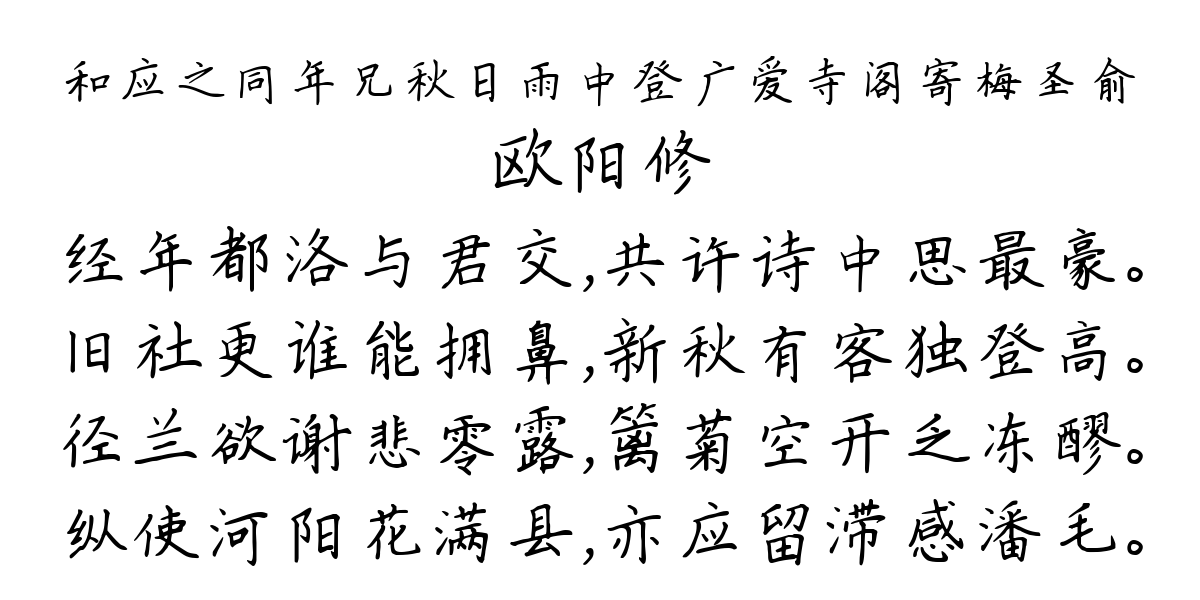 和应之同年兄秋日雨中登广爱寺阁寄梅圣俞
欧阳修
经年都洛与君交,共许诗中思最豪。
旧社更谁能拥鼻,新秋有客独登高。
径兰欲谢悲零露,篱菊空开乏冻醪。
纵使河阳花满县,亦应留滞感潘毛。